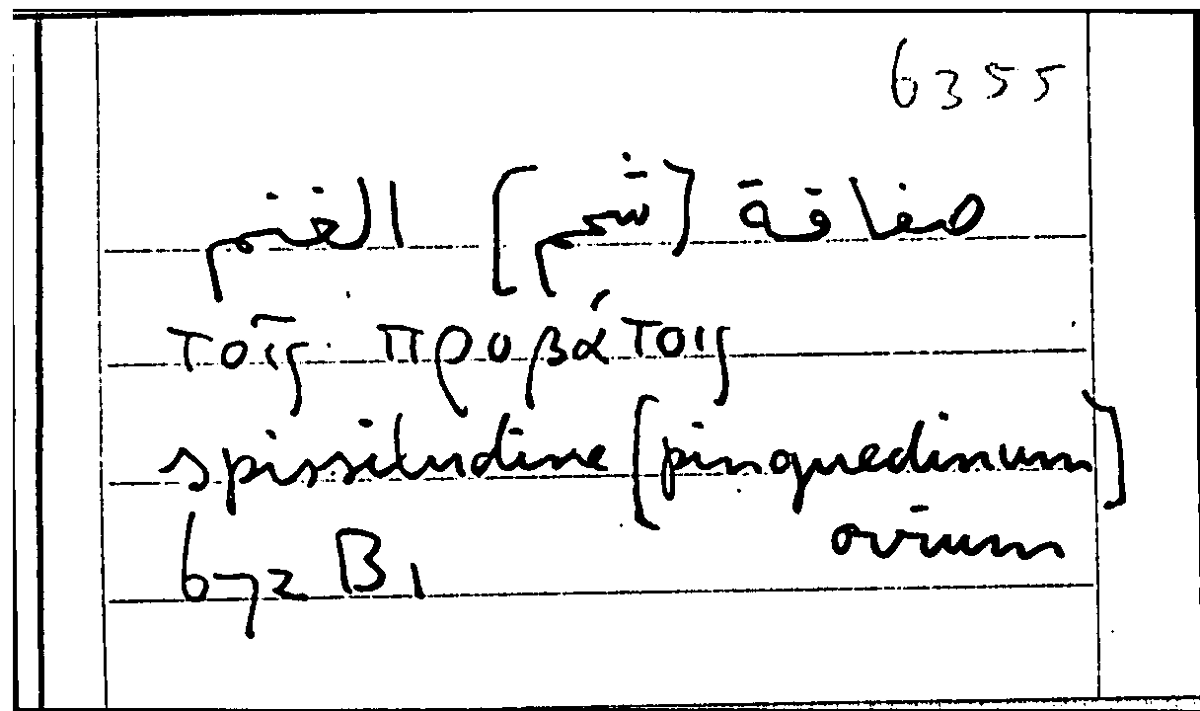 6355
صفاقة [شحم] الغنم
τοῖς προβάτοις
spissitudine [pinguedinum]
ovium
672 B1